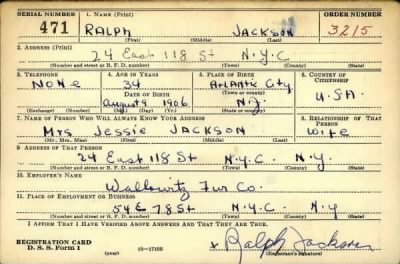 SERIAL NUMBER 1. NAME (Print) ORDER NUMBER
471 RALPH JACKSON 3215
(First) (Middle) (Last)
2. ADDRESS (Print)
24 East 118 St N.Y.C
(Number and street or R. F. D. number) (Town) (County) (State)
3. TELEPHONE 4. AGE IN YEARS 5. PLACE OF BIRTH 6. COUNTRY OF CITIZENSHIP
NONE 34 Atlantic City
DATE OF BIRTH (Town or county) U.S.A.
August 9 1906 N.J.
(Exchange) (Number) (Mo.) (Day) (Yr.) (State or country)
7. NAME OF PERSON WHO WILL ALWAYS KNOW YOUR ADDRESS 8. RELATIONSHIP OF THAT PERSON
Mrs Jessie JACKSON wife
(Mr., Mrs., Miss) (First) (Middle) (Last)
9. ADDRESS OF THAT PERSON
24 East 118 St N.Y.C. N.Y
(Number and street or R. F. D. number) (Town) (County) (State)
10. EMPLOYER'S NAME
Fur Co.
11. PLACE OF EMPLOYMENT OR BUSINESS
St N.Y.C. N.Y
(Number and street or R. F. D. number) (Town) (County) (State)
I AFFIRM THAT I HAVE VERIFIED ABOVE ANSWERS AND THAT THEY ARE TRUE.
REGISTRATION CARD
D. S. S. Form 1 16-17105 x Ralph Jackson
(Registrant's signature)